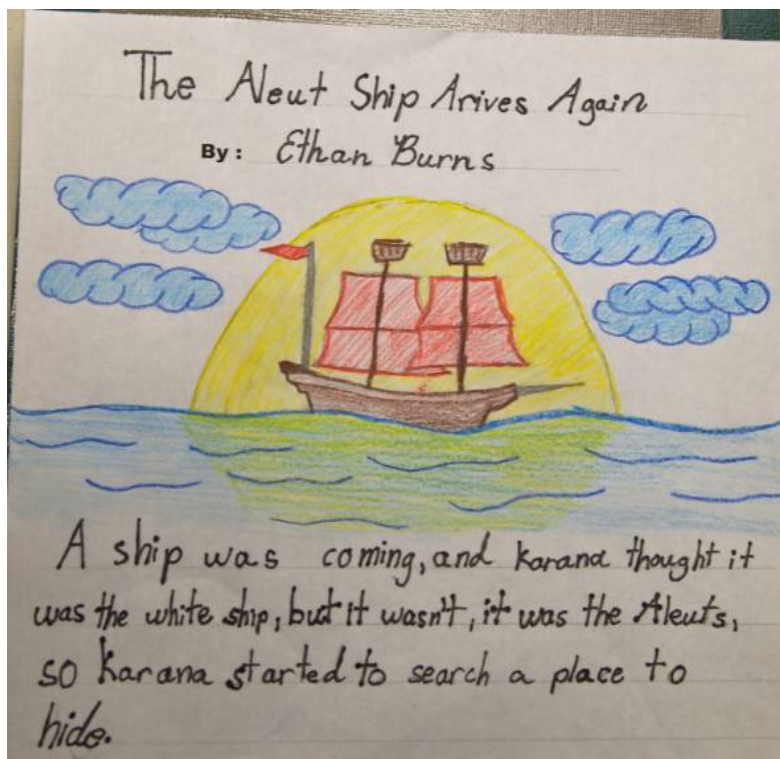 The Aleut Ship Arives Again
By: Ethan Burns
A ship was coming, and Karana thought it
was the white ship, but it wasn't, it was the Aleuts,
so Karana started to search a place to
hide.